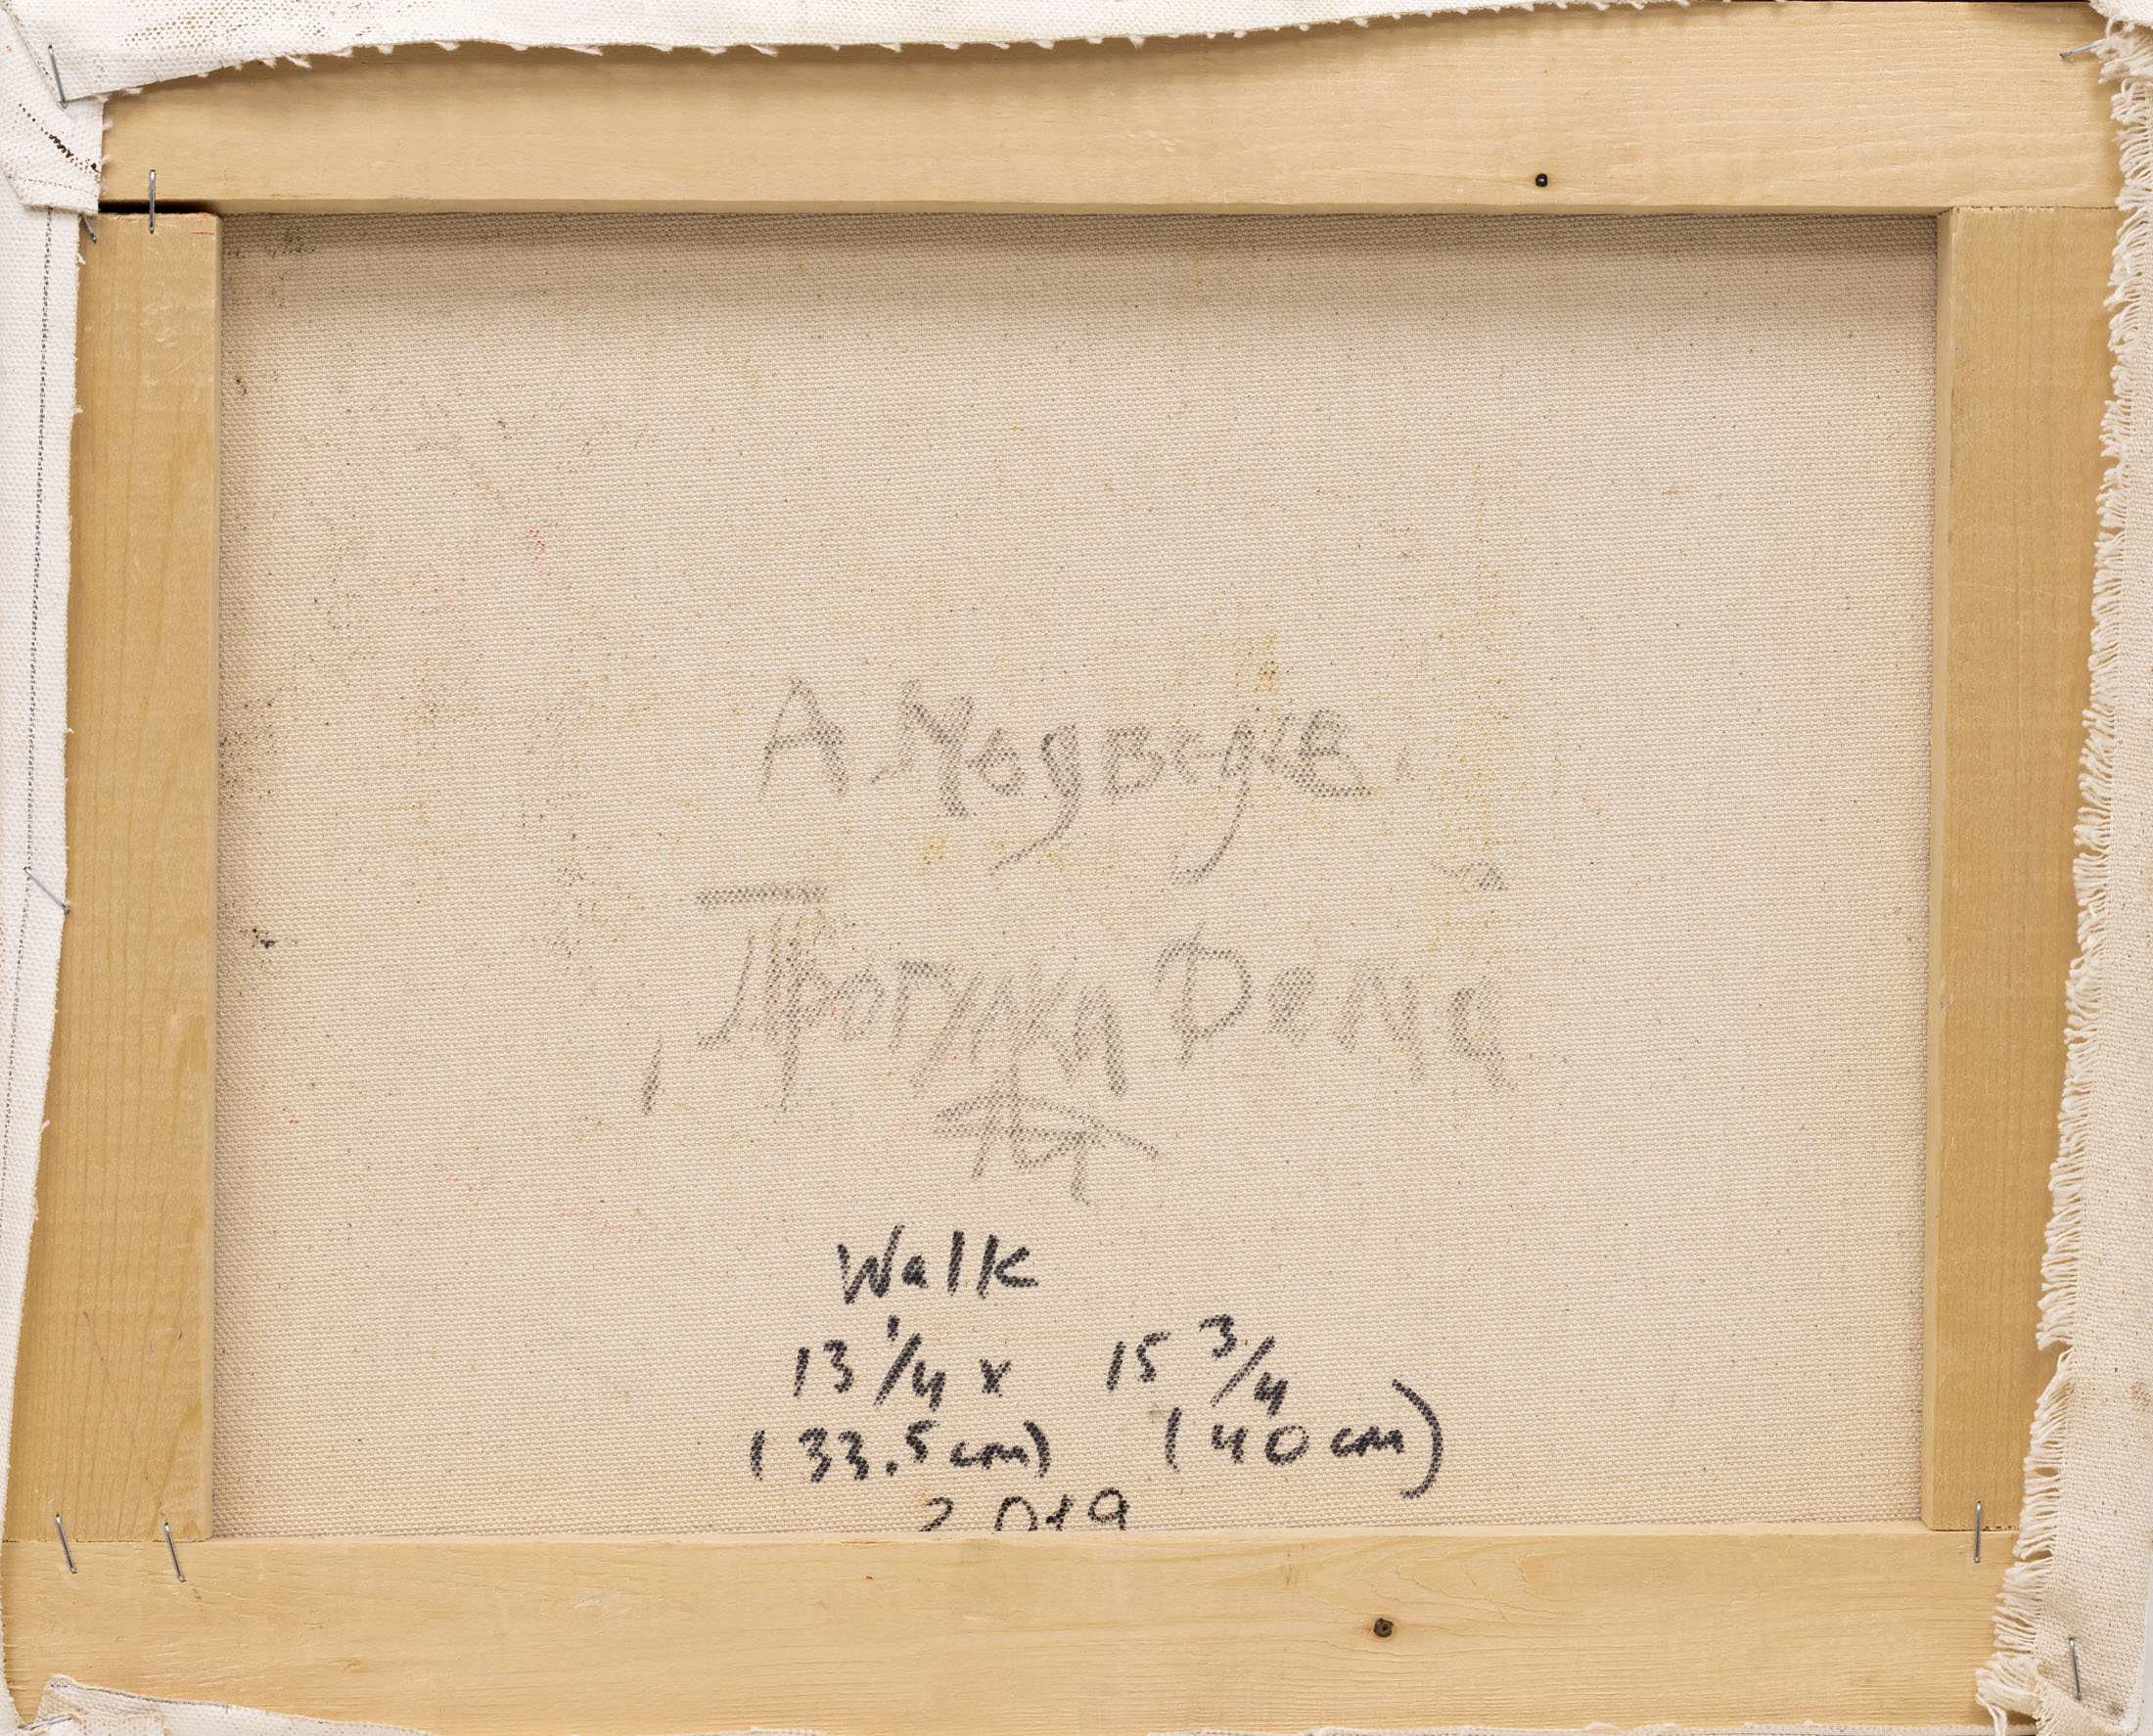 А Медведев.
Прогулка
Walk
13 1/4 x 15 3/4
(33.5 cm) (40 cm)
2019